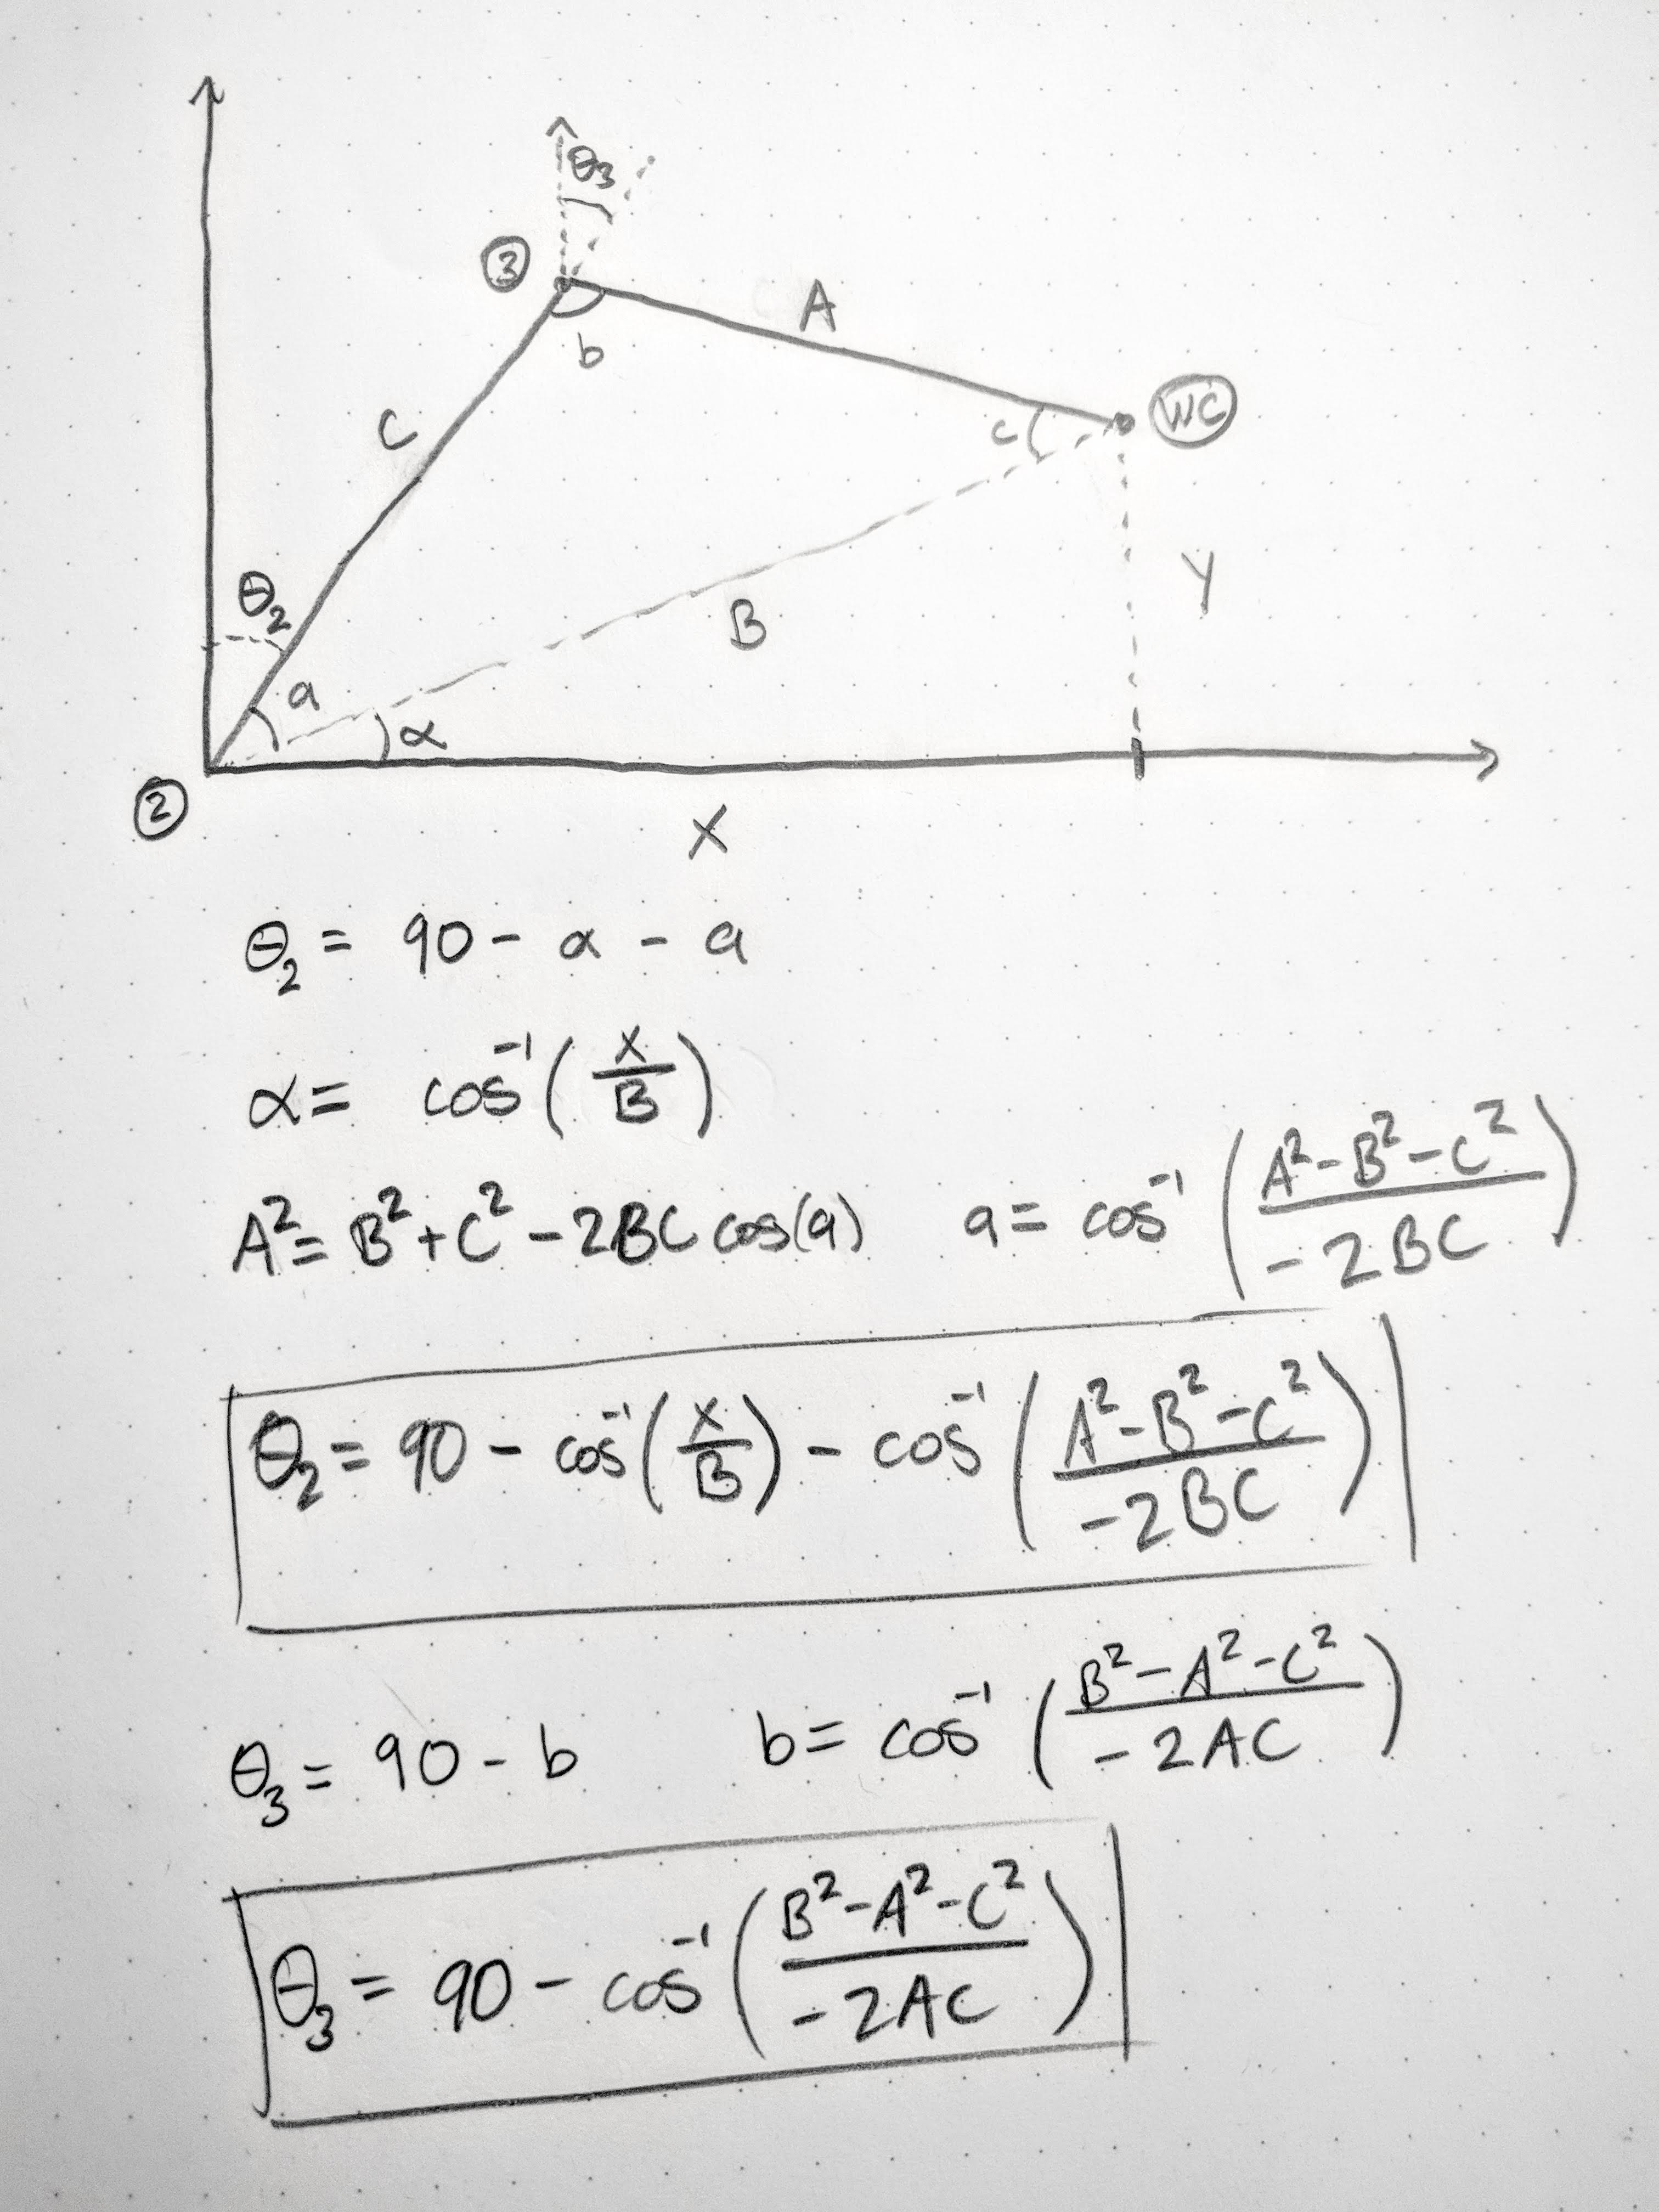 θ₃
③
A
b
WC
C
c
θ₂
Y
B
a
α
②
X
θ₂ = 90 - α - a
α = cos⁻¹(X/B)
A² = B² + C² - 2BC cos(a) a = cos⁻¹((A² - B² - C²)/(-2BC))
θ₂ = 90 - cos⁻¹(X/B) - cos⁻¹((A² - B² - C²)/(-2BC))
θ₃ = 90 - b b = cos⁻¹((B² - A² - C²)/(-2AC))
θ₃ = 90 - cos⁻¹((B² - A² - C²)/(-2AC))